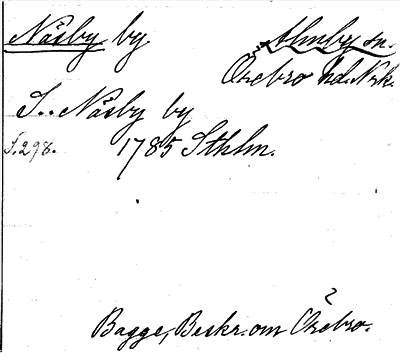 Näsby by
Almby sn.
Örebro hd. Nrk.
S.. Näsby by
s. 298. 1785 Sthlm.
Bagge, Beskr. om Örebro.